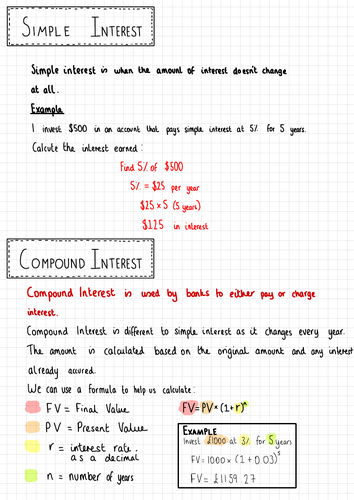 SIMPLE INTEREST
Simple interest is when the amount of interest doesn't change
at all.
Example
I invest $500 in an account that pays simple interest at 5% for 5 years.
Calcute the interest earned:
Find 5% of $500
5% = $25 per year
$25 × 5 (5 years)
$125 in interest
COMPOUND INTEREST
Compound Interest is used by banks to either pay or charge
interest.
Compound Interest is different to simple interest as it changes every year.
The amount is calculated based on the original amount and any interest
already accured.
We can use a formula to help us calculate:
FV = Final Value
PV = Present Value
r = interest rate
as a decimal
n = number of years
FV=PV×(1+r)ⁿ
EXAMPLE
Invest £1000 at 3% for 5 years
FV = 1000 × (1 + 0.03)⁵
FV = £1159.27